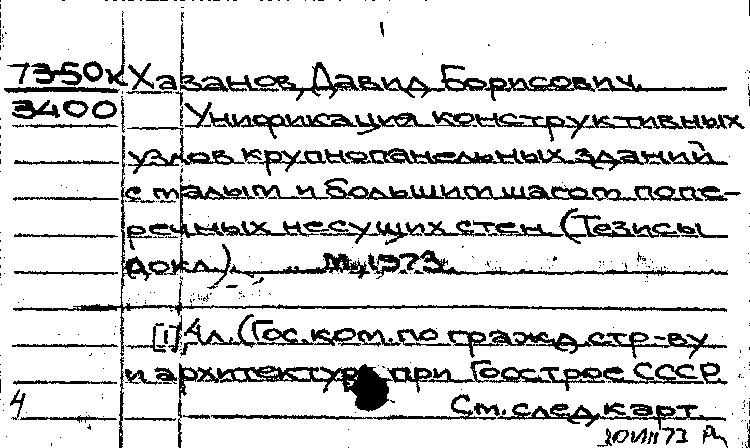 73-50к Хазанов, Давид Борисович.
3400 Унификация конструктивных
узлов крупнопанельных зданий
с малым и большим шагом попе-
речных несущих стен. (Тезисы
докл.). М., 1973.
[1], 4 л. (Гос. ком. по гражд. стр-ву
и архитектуре при Госстрое СССР
4 См. след. карт.